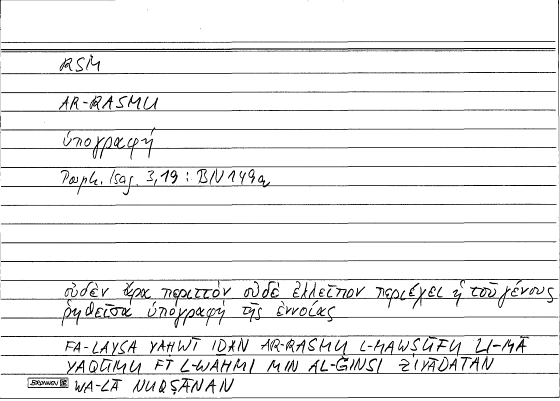 RSM
AR-RASMU
ὑπογραφή
Porph. Isag. 3,19 : BN 149a
οὐδὲν ἄρα περιττὸν οὐδὲ ἐλλεῖπον περιέχει ἡ τοῦ γένους
ῥηθεῖσα ὑπογραφὴ τῆς ἐννοίας
FA-LAYSA YAḤWĪ IḎAN AR-RASMU L-MAWṢŪFU LI-MĀ
YAQŪMU FĪ L-WAHMI MIN AL-ĞINSI ZIYĀDATAN
WA-LĀ NUQṢĀNAN